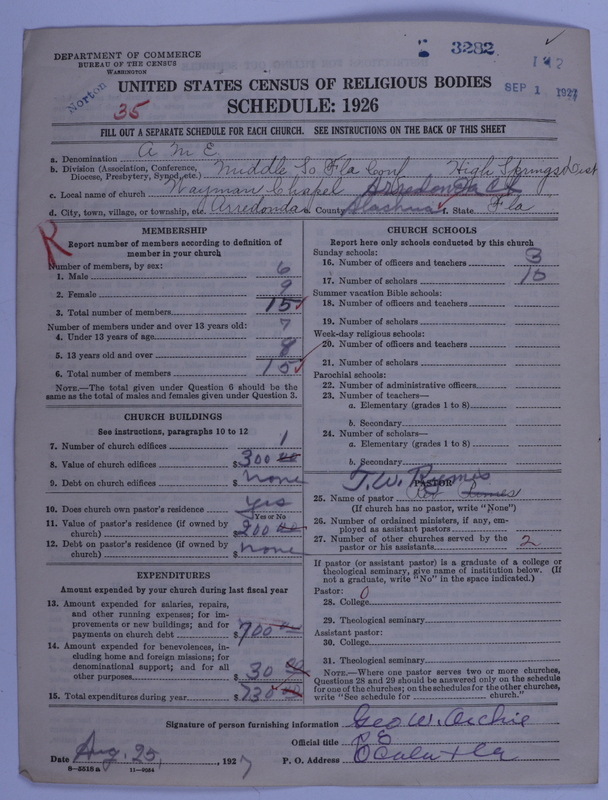 3282
DEPARTMENT OF COMMERCE
BUREAU OF THE CENSUS
WASHINGTON
UNITED STATES CENSUS OF RELIGIOUS BODIES
SEP 1 1927
Norton
35
SCHEDULE: 1926
FILL OUT A SEPARATE SCHEDULE FOR EACH CHURCH. SEE INSTRUCTIONS ON THE BACK OF THIS SHEET
a. Denomination A M E
b. Division (Association, Conference, Diocese, Presbytery, Synod, etc.) Middle So Fla Conf High Springs Dist
c. Local name of church Wayman Chapel
d. City, town, village, or township, etc. Arredonda e. County Alachua f. State Fla
R
MEMBERSHIP
Report number of members according to definition of
member in your church
Number of members, by sex:
1. Male 6
2. Female 9
3. Total number of members 15
Number of members under and over 13 years old:
4. Under 13 years of age 7
5. 13 years old and over 8
6. Total number of members 15
NOTE.—The total given under Question 6 should be the
same as the total of males and females given under Question 3.
CHURCH BUILDINGS
See instructions, paragraphs 10 to 12
7. Number of church edifices 1
8. Value of church edifices $300 00
9. Debt on church edifices $ none
10. Does church own pastor's residence yes
(Yes or No
11. Value of pastor's residence (if owned by
church) $200 00
12. Debt on pastor's residence (if owned by
church) $ none
EXPENDITURES
Amount expended by your church during last fiscal year
13. Amount expended for salaries, repairs,
and other running expenses; for im-
provements or new buildings; and for
payments on church debt $700 00
14. Amount expended for benevolences, in-
cluding home and foreign missions; for
denominational support; and for all
other purposes $30 00
15. Total expenditures during year $730
CHURCH SCHOOLS
Report here only schools conducted by this church
Sunday schools:
16. Number of officers and teachers 3
17. Number of scholars 10
Summer vacation Bible schools:
18. Number of officers and teachers
19. Number of scholars
Week-day religious schools:
20. Number of officers and teachers
21. Number of scholars
Parochial schools:
22. Number of administrative officers
23. Number of teachers—
a. Elementary (grades 1 to 8)
b. Secondary
24. Number of scholars—
a. Elementary (grades 1 to 8)
b. Secondary
PASTOR
25. Name of pastor
(If church has no pastor, write "None")
26. Number of ordained ministers, if any, em-
ployed as assistant pastors
27. Number of other churches served by the
pastor or his assistants 2
If pastor (or assistant pastor) is a graduate of a college or
theological seminary, give name of institution below. (If
not a graduate, write "No" in the space indicated.)
Pastor: 0
28. College
29. Theological seminary
Assistant pastor:
30. College
31. Theological seminary
NOTE.—Where one pastor serves two or more churches,
Questions 28 and 29 should be answered only on the schedule
for one of the churches; on the schedules for the other churches,
write "See schedule for church."
Signature of person furnishing information Geo W. Archie
Official title P E
Date Aug. 25, 1927 P. O. Address Ocala Fla
8-5318a 11-9054